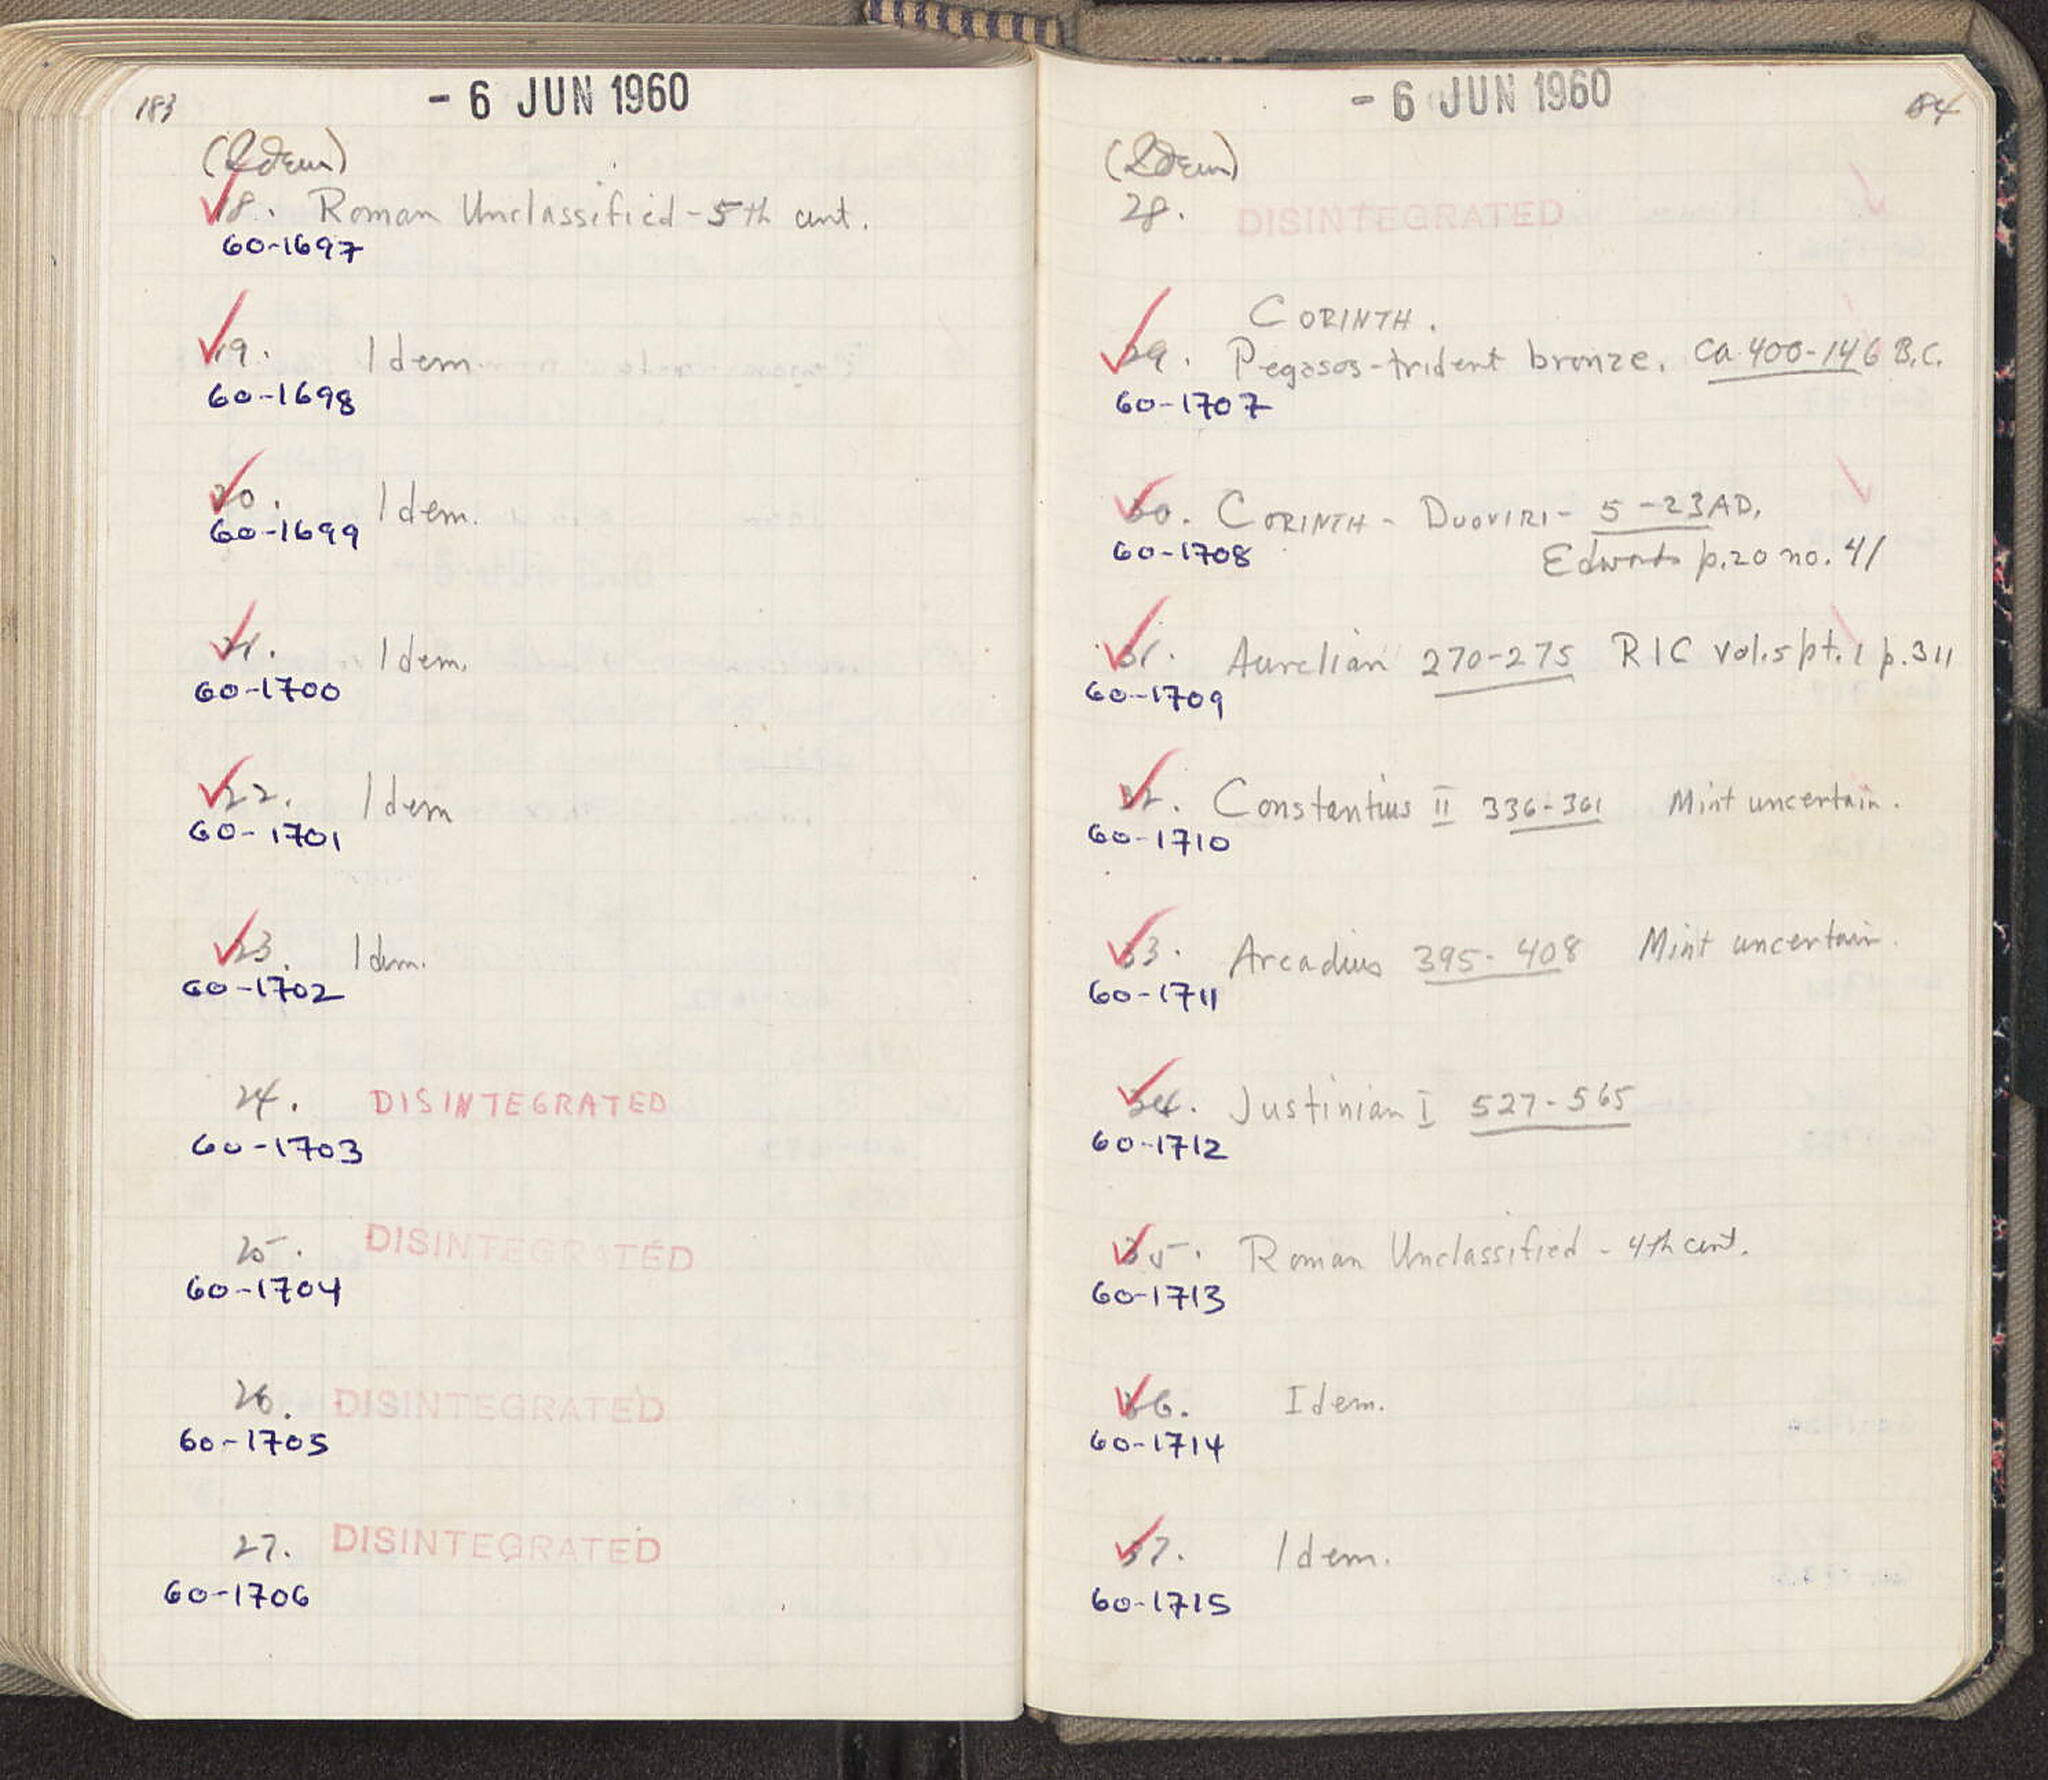 183
- 6 JUN 1960
(Idem)
18. Roman Unclassified - 5th cent.
60-1697
19. Idem.
60-1698
20. Idem.
60-1699
21. Idem.
60-1700
22. Idem
60-1701
23. Idem.
60-1702
24. DISINTEGRATED
60-1703
25. DISINTEGRATED
60-1704
26. DISINTEGRATED
60-1705
27. DISINTEGRATED
60-1706
- 6 JUN 1960
184
(Idem)
28. DISINTEGRATED
CORINTH.
29. Pegasos-trident bronze. ca. 400-146 B.C.
60-1707
30. CORINTH - DUOVIRI - 5-23 AD.
60-1708
Edwards p.20 no. 41
31. Aurelian 270-275 RIC vol.5 pt.1 p.311
60-1709
32. Constantius II 336-361 Mint uncertain.
60-1710
33. Arcadius 395-408 Mint uncertain.
60-1711
34. Justinian I 527-565
60-1712
35. Roman Unclassified - 4th cent.
60-1713
36. Idem.
60-1714
37. Idem.
60-1715